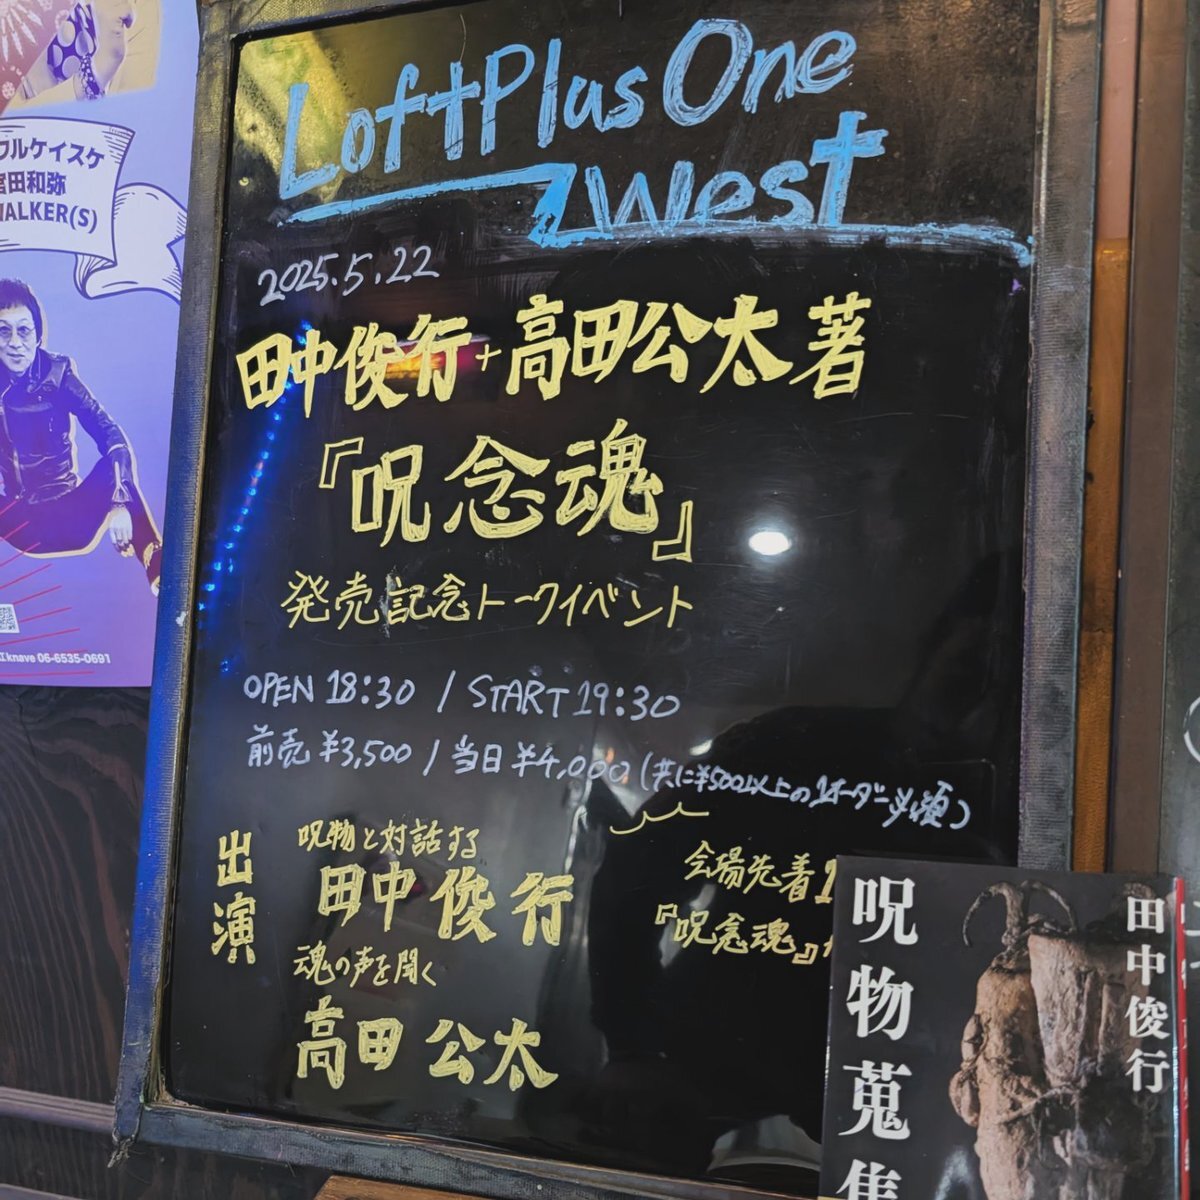 LoftPlusOne
West
2025.5.22
田中俊行+高田公太 著
『呪念魂』
発売記念トークイベント
OPEN 18:30 / START 19:30
前売 ¥3,500 / 当日 ¥4,000 (共に¥500以上の1オーダー必須)
出演
呪物と対話する
田中 俊行
魂の声を聞く
高田 公太
会場先着1
『呪念魂』
フルケイスケ
宮田和弥
WALKER(S)
knave 06-6535-0691
呪物蒐集
田中俊行